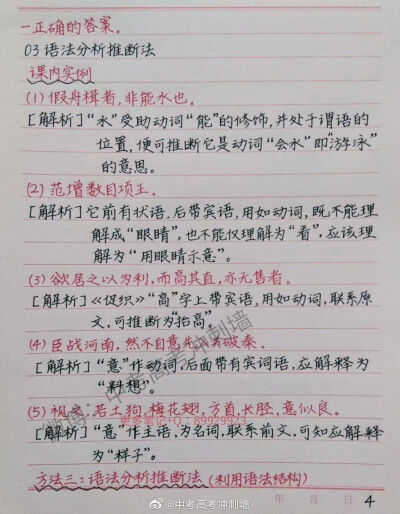 一正确的答案。
03 语法分析推断法
课内实例
(1) 假舟楫者,非能水也。
[解析]“水”受助动词“能”的修饰,并处于谓语的
位置,便可推断它是动词“会水”即“游泳”
的意思。
(2) 范增数目项王。
[解析]它前有状语,后带宾语,用如动词,既不能理
解成“眼睛”,也不能仅理解为“看”,应该理
解为“用眼睛示意”。
(3) 欲居之以为利,而高其直,亦无售者。
[解析]《促织》“高”字上带宾语,用如动词,联系原
文,可推断为“抬高”。
(4) 臣战河南,然不自意先入关破秦。
[解析]“意”作动词,后面带有宾词语,应解释为
“料想”。
(5) 视之,若土狗,梅花翅,方首,长胫,意似良。
更多笔记+Q:89929923
[解析]“意”作主语,为名词,联系前文,可知应解释
为“样子”。
方法三:语法分析推断法(利用语法结构)
年 月 日
4
微博:中考高考冲刺墙
@中考高考冲刺墙